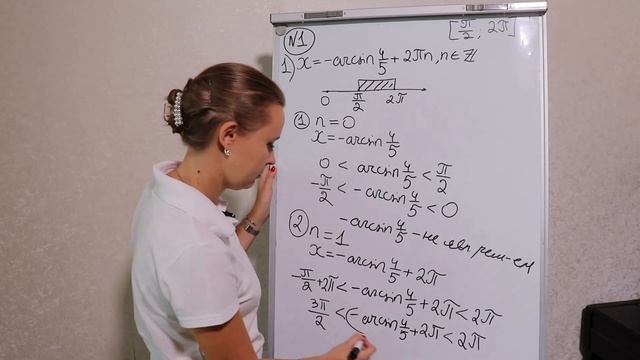 №1
[π/2, 2π]
1) x = -arcsin 4/5 + 2πn, n∈ℤ
0 π/2 2π
① n = 0
x = -arcsin 4/5
0 < arcsin 4/5 < π/2
-π/2 < -arcsin 4/5 < 0
-arcsin 4/5 - не явл реш-ем
② n = 1
x = -arcsin 4/5 + 2π
-π/2 + 2π < -arcsin 4/5 + 2π < 2π
3π/2 < (-arcsin 4/5 + 2π < 2π